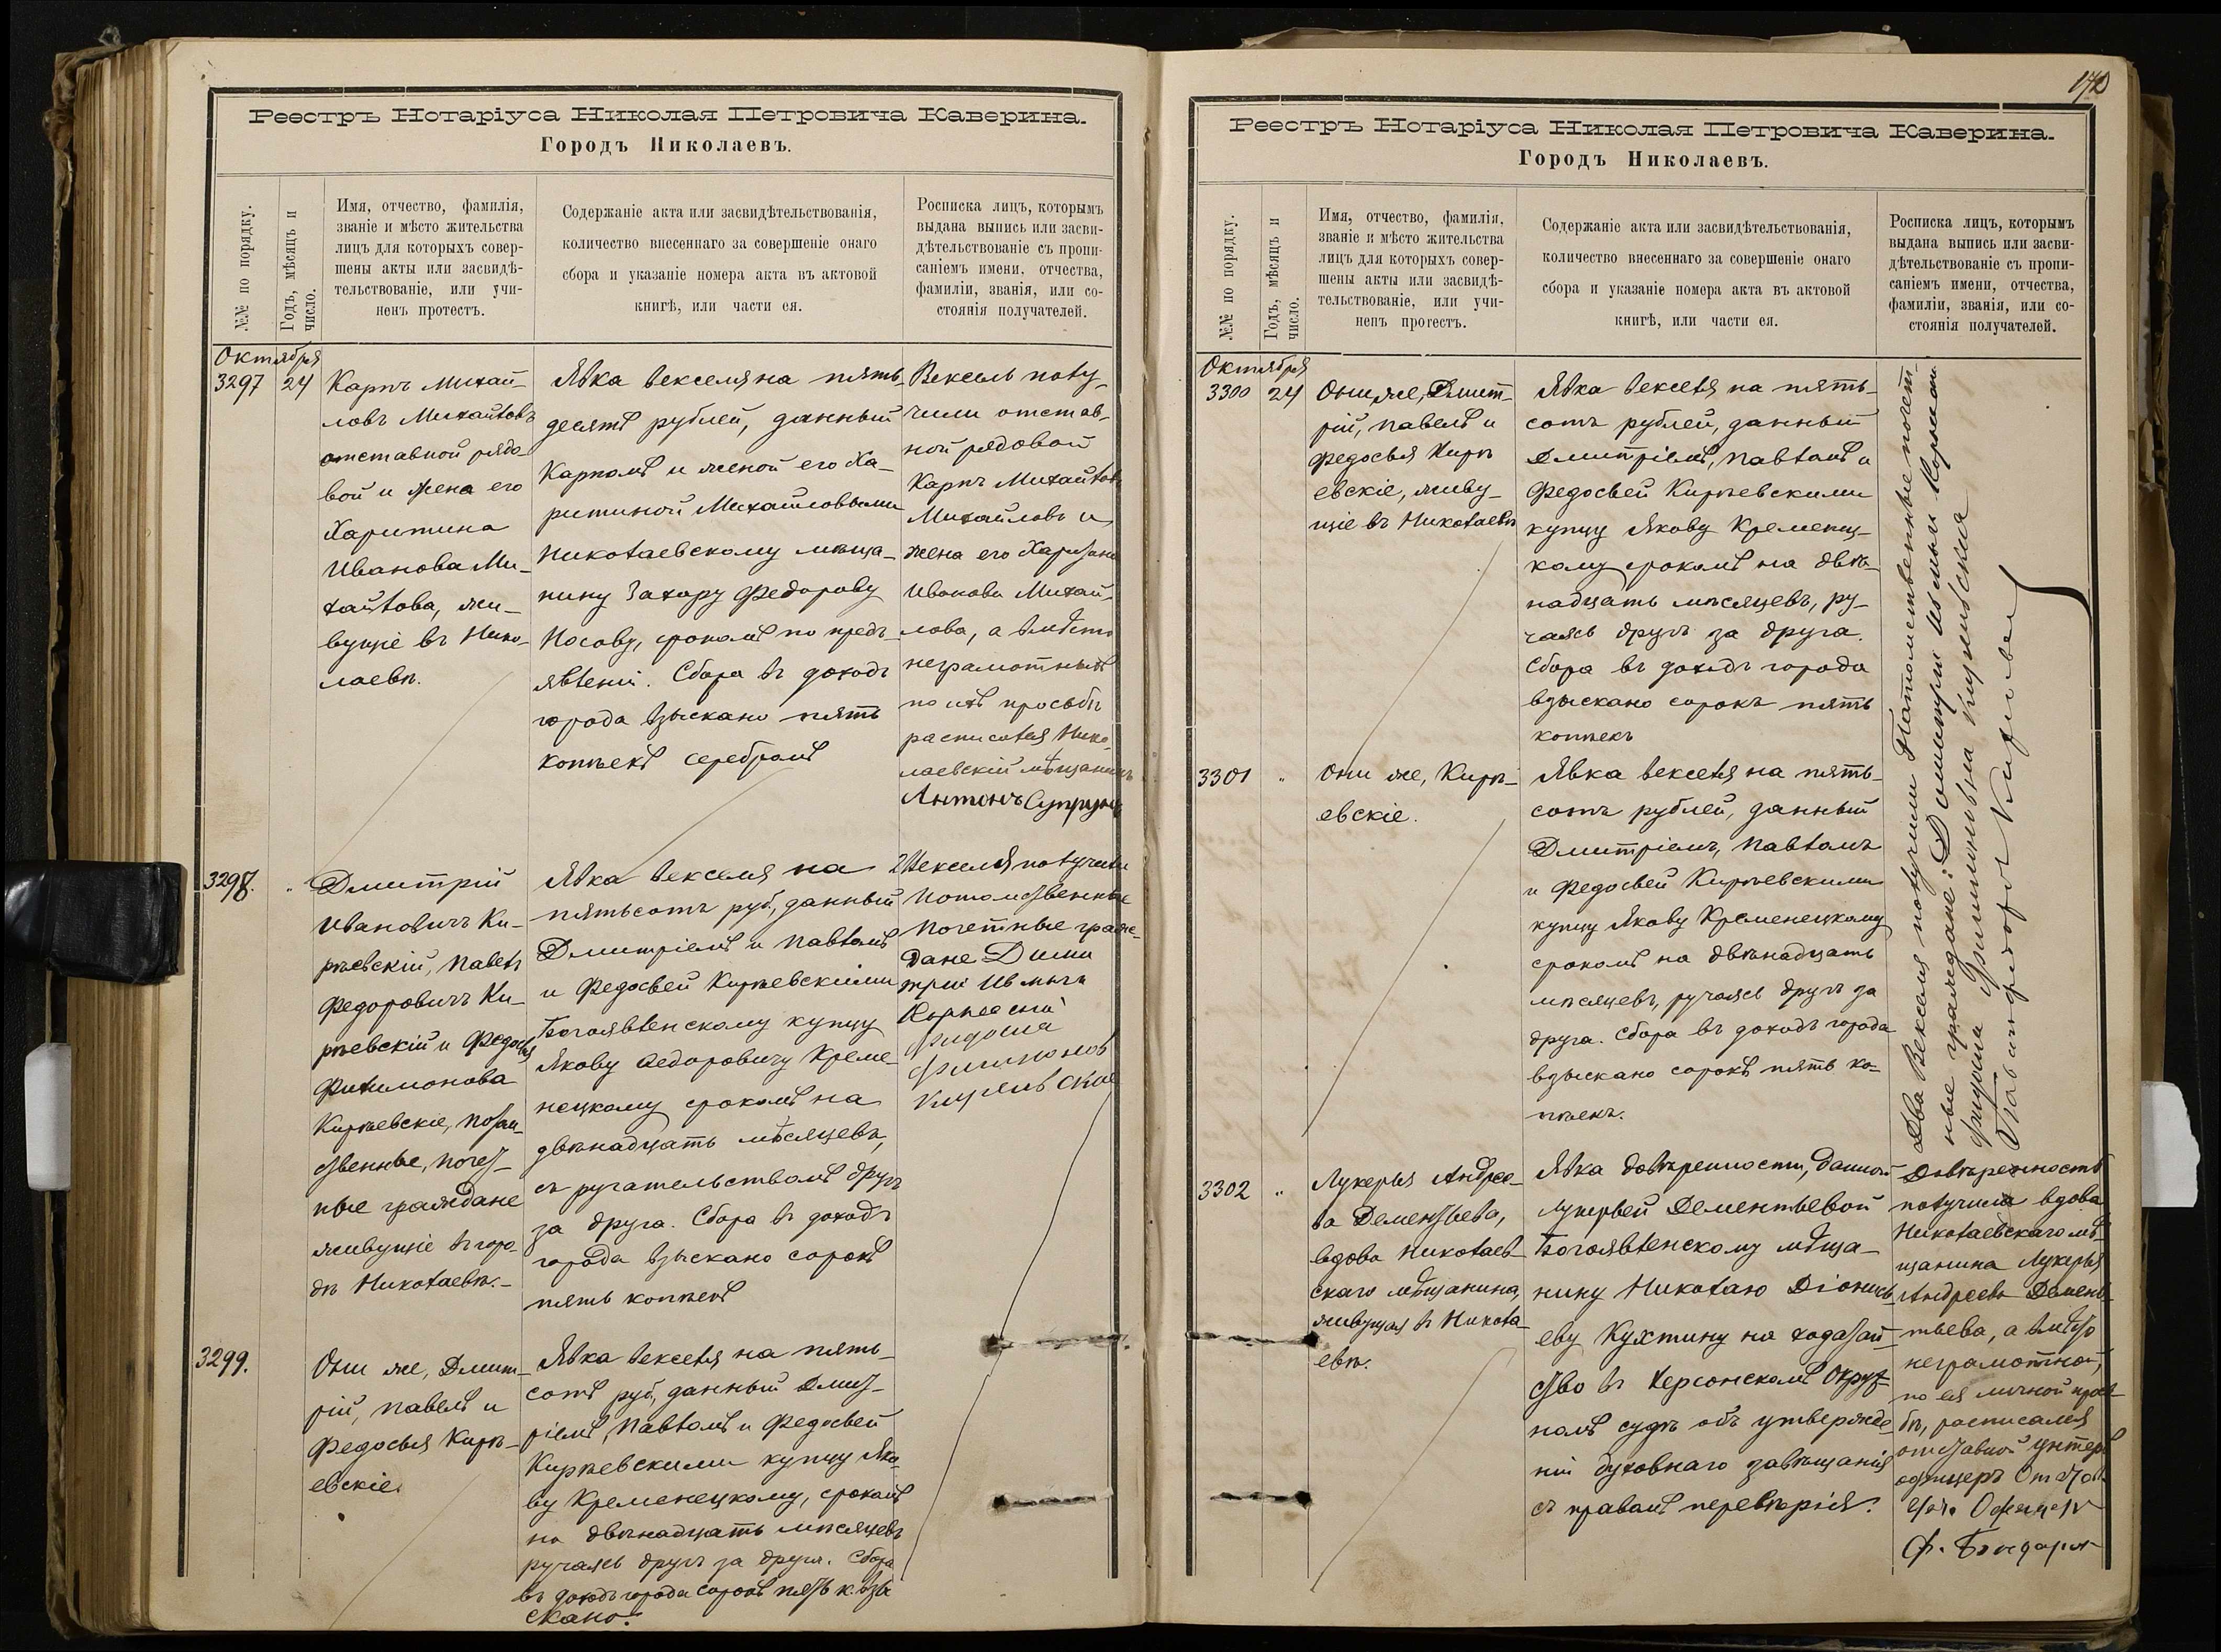 Реестръ Нотаріуса Николая Петровича Каверина.
Городъ Николаевъ.
№№ по порядку.
Годъ, мѣсяцъ и
число.
Имя, отчество, фамилія,
званіе и мѣсто жительства
лицъ для которыхъ совер-
шены акты или засвидѣ-
тельствованіе, или учи-
ненъ протестъ.
Содержаніе акта или засвидѣтельствованія,
количество внесеннаго за совершеніе онаго
сбора и указаніе номера акта въ актовой
книгѣ, или части ея.
Росписка лицъ, которымъ
выдана выпись или засви-
дѣтельствованіе съ пропи-
саніемъ имени, отчества,
фамиліи, званія, или со-
стоянія получателей.
Октября
3297
24
Карпъ Михай-
ловъ Михайловъ
отставной рядо-
вой и жена его
Харитина
Иванова Ми-
хайлова, жи-
вущіе въ Нико-
лаевѣ.
Явка векселя на пять-
десятъ рублей, данный
Карпомъ и женой его Ха-
ритиной Михайловыми
Николаевскому мѣща-
нину Захару Федорову
Носову, срокомъ по предъ-
явленіи. Сбора въ доходъ
города взыскано пять
копѣекъ серебромъ
Вексель полу-
чили отстав-
ной рядовой
Карпъ Михайловъ
Михайловъ и
жена его Харитина
Иванова Михай-
лова, а вмѣсто
неграмотныхъ
по ихъ просьбѣ
расписался Нико-
лаевскій мѣщанинъ
Антонъ Супрунъ
3298.
"
Дмитрій
Ивановичъ Ки-
рѣевскій, Павелъ
Федоровичъ Ки-
рѣевскій и Федосья
Филимонова
Кирѣевскіе, потом-
ственные, почет-
ные граждане
живущіе въ горо-
дѣ Николаевѣ.-
Явка векселя на
пятьсотъ руб., данный
Дмитріемъ и Павломъ
и Федосьей Кирѣевскими
Богоявленскому купцу
Якову Федоровичу Креме-
нецкому срокомъ на
двѣнадцать мѣсяцевъ,
съ ручательствомъ другъ
за друга. Сбора въ доходъ
города взыскано сорокъ
пять копѣекъ
2 Векселя получили
Потомственные
Почетные граж-
дане
3299.
Они же, Дмит-
рій, Павелъ и
Федосья Кирѣ-
евскіе.
Явка векселя на пять-
сотъ руб, данный Дмит-
ріемъ, Павломъ и Федосьей
Кирѣевскими купцу Яко-
ву Кременецкому, срокомъ
на двѣнадцать мѣсяцевъ
ручаясь другъ за друга. Сбора
въ доходъ города сорокъ пять к. взы
скано.
Реестръ Нотаріуса Николая Петровича Каверина.
Городъ Николаевъ.
№№ по порядку.
Годъ, мѣсяцъ и
число.
Имя, отчество, фамилія,
званіе и мѣсто жительства
лицъ для которыхъ совер-
шены акты или засвидѣ-
тельствованіе, или учи-
ненъ протестъ.
Содержаніе акта или засвидѣтельствованія,
количество внесеннаго за совершеніе онаго
сбора и указаніе номера акта въ актовой
книгѣ, или части ея.
Росписка лицъ, которымъ
выдана выпись или засви-
дѣтельствованіе съ пропи-
саніемъ имени, отчества,
фамиліи, званія, или со-
стоянія получателей.
Октября
3300
24
Они же, Дмит-
рій, Павелъ и
Федосья Кирѣ
евскіе, живу-
щіе въ Николаевѣ
Явка векселя на пять-
сотъ рублей, данный
Дмитріемъ, Павломъ и
Федосьей Кирѣевскими
купцу Якову Кременец-
кому срокомъ на двѣ-
надцать мѣсяцевъ, ру-
чаясь другъ за друга.
Сбора въ доходъ города
взыскано сорокъ пять
копѣекъ
Два Векселя получили Потомственные почет-
ные граждане:
3301
"
Они же, Кирѣ-
евскіе.
Явка векселя на пять-
сотъ рублей, данный
Дмитріемъ, Павломъ
и Федосьей Кирѣевскими
купцу Якову Кременецкому
срокомъ на двѣнадцать
мѣсяцевъ, ручаясь другъ за
друга. Сбора въ доходъ города
взыскано сорокъ пять ко-
пѣекъ.
3302
"
Лукерья Андрее-
ва Дементьева,
вдова Николаев-
скаго мѣщанина,
живущая въ Никола-
евѣ.
Явка довѣренности, данной
Лукерьей Дементьевой
Богоявленскому мѣща-
нину Николаю Діонись-
еву Кухтину на ходатай-
ство въ Херсонскомъ Окруж-
номъ судѣ объ утвержде-
ніи духовнаго завѣщанія
съ правомъ перевѣрія.
Довѣренность
получила вдова
Николаевскаго мѣ-
щанина Лукерья
Андреева Демен-
тьева, а вмѣсто
неграмотной,
по ея личной прось-
бѣ, расписался
отставной унтеръ
офицеръ